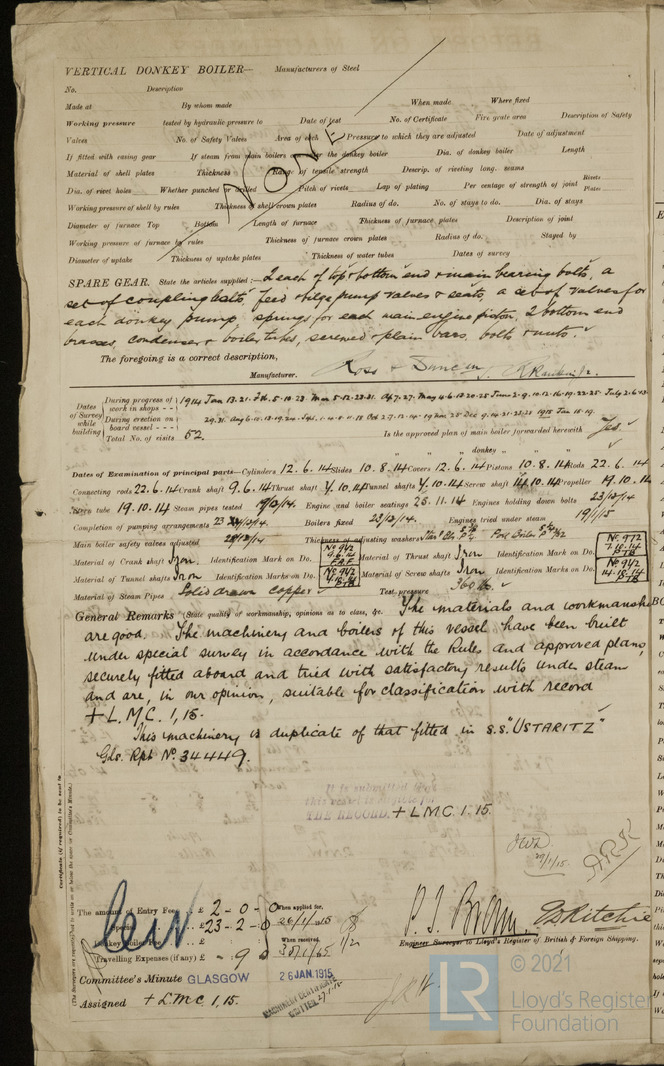 VERTICAL DONKEY BOILER— Manufacturers of Steel
No. Description
Made at By whom made When made Where fixed
Working pressure tested by hydraulic pressure to Date of test No. of Certificate Fire grate area Description of Safety
Valves No. of Safety Valves Area of each Pressure to which they are adjusted Date of adjustment
If fitted with casing gear If steam from main boilers can enter the donkey boiler Dia. of donkey boiler Length
Material of shell plates Thickness Range of tensile strength Descrip. of riveting long. seams
Dia. of rivet holes Whether punched or drilled Pitch of rivets Lap of plating Per centage of strength of joint Rivets Plates
Working pressure of shell by rules Thickness of shell crown plates Radius of do. No. of stays to do. Dia. of stays
Diameter of furnace Top Bottom Length of furnace Thickness of furnace plates Description of joint
Working pressure of furnace by rules Thickness of furnace crown plates Radius of do. Stayed by
Diameter of uptake Thickness of uptake plates Thickness of water tubes Dates of survey
NONE
SPARE GEAR. State the articles supplied:— 2 each of top & bottom end & main bearing bolts, a
set of coupling bolts, feed & bilge pump valves & seats, a set of valves for
each donkey pump, springs for each main engine piston, 2 bottom end
brasses, condenser & boiler tubes, screwed & plain bars, bolts & nuts.
The foregoing is a correct description,
Manufacturer. Ross & Duncan
Dates of Survey while building
During progress of work in shops - - 1914 Jan 13. 21. Feb. 5. 10. 23. Mar 5. 12. 23. 31. Ap 7. 27. May 4. 6. 13. 20. 25. June 2. 9. 10. 12. 16. 19. 22. 25. July 2. 6. 13.
During erection on board vessel - - - 29. 31. Aug 6. 10. 13. 19. 24. Sep. 1. 4. 8. 11. 18 Oct 2. 7. 12. 14. 19 Nov 25 Dec 9. 14. 21. 23. 28 1915 Jan 15. 19.
Total No. of visits 52. Is the approved plan of main boiler forwarded herewith Yes.
" " " donkey " " "
Dates of Examination of principal parts—Cylinders 12.6.14 Slides 10.8.14 Covers 12.6.14 Pistons 10.8.14 Rods 22.6.14
Connecting rods 22.6.14 Crank shaft 9.6.14 Thrust shaft 7.10.14 Tunnel shafts 7.10.14 Screw shaft 14.10.14 Propeller 19.10.14
Stern tube 19.10.14 Steam pipes tested 9/12/14. Engine and boiler seatings 25.11.14 Engines holding down bolts 23/12/14
Completion of pumping arrangements 23/12/14. Boilers fixed 23/12/14. Engines tried under steam 19/1/15
Main boiler safety valves adjusted 28/12/14 Thickness of adjusting washers
Material of Crank shaft Iron. Identification Mark on Do. No 942 9.6.14 Material of Thrust shaft Iron Identification Mark on Do. No 972 7.10.14
Material of Tunnel shafts Iron Identification Marks on Do. No 942 Material of Screw shafts Iron Identification Marks on Do. No 942 14.10.14
Material of Steam Pipes Solid drawn copper Test pressure 360 lb.
General Remarks (State quality of workmanship, opinions as to class, &c. The materials and workmanship
are good. The machinery and boilers of this vessel have been built
under special survey in accordance with the Rules and approved plans,
securely fitted aboard and tried with satisfactory results under steam
and are, in our opinion, suitable for classification with record
+ L.M.C. 1,15.
This machinery is duplicate of that fitted in s.s. "USTARITZ"
Gls. Rpt No. 34449.
It is submitted that
this vessel is eligible for
THE RECORD. + LMC. 1.15.
29/1/15.
Certificate (if required) to be sent to
The amount of Entry Fee .. £ 2 - 0 - 0 When applied for,
Special .. £ 23 - 2 - 0 26/1/15
Donkey Boiler Fee .. £ When received,
Travelling Expenses (if any) £ - 9 0 30/1/15
Engineer Surveyor to Lloyd's Register of British & Foreign Shipping.
Committee's Minute GLASGOW 26 JAN. 1915
Assigned + L.M.C. 1,15.
MACHINERY CERTIFICATE
WRITTEN
© 2021
Lloyd's Register
Foundation
LR